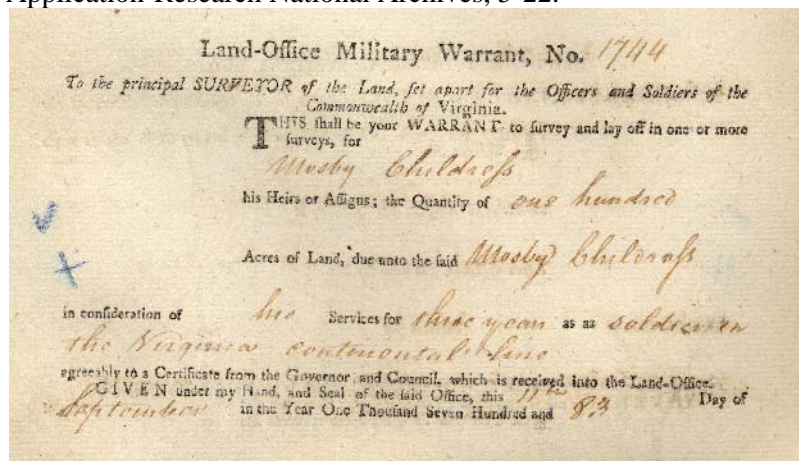 Application Research National Archives, 3-22.
Land-Office Military Warrant, No. 1744
To the principal SURVEYOR of the Land, ſet apart for the Officers and Soldiers of the
Commonwealth of Virginia.
THIS ſhall be your WARRANT to ſurvey and lay off in one or more
ſurveys, for
Mosby Childreſs
his Heirs or Aſſigns; the Quantity of one hundred
Acres of Land, due unto the ſaid Mosby Childreſs
in conſideration of his Services for three years as a ſoldier in
the Virginia continental line
agreeably to a Certificate from the Governor and Council, which is received into the Land-Office.
GIVEN under my Hand, and Seal of the ſaid Office, this 11th Day of
September in the Year One Thouſand Seven Hundred and 83